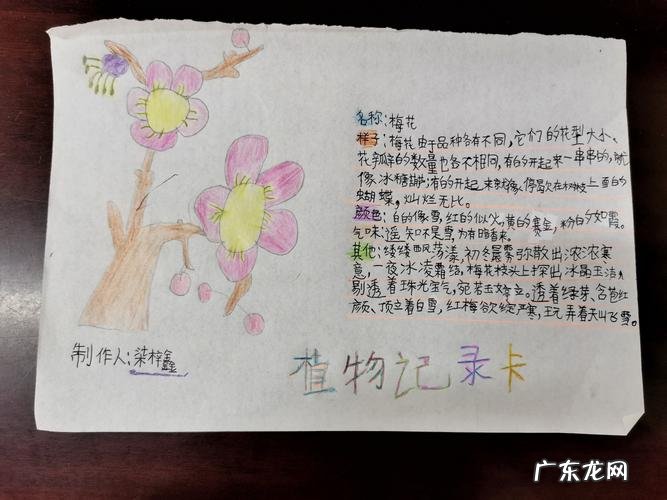 名称:梅花
样子:梅花由于品种各有不同,它们的花型大小、
花瓣的数量也各不相同,有的开起来一串串的,就
像冰糖葫芦;有的开起来就像停息在树枝上面的
蝴蝶,灿烂无比。
颜色:白的像雪,红的似火,黄的赛金,粉白的如霞。
气味:遥知不是雪,为有暗香来。
其他:缕缕西风荡漾,初冬晨雾弥散出浓浓寒
意,一夜冰凌霜结,梅花枝头上探出,冰晶玉洁
剔透着珠光宝气,宛若玉女客立。透着绿芽、含苞红
颜、顶立着白雪,红梅欲绽严寒,玩弄着天叫飞雪。
制作人:梁梓鑫
植物记录卡
广东龙网